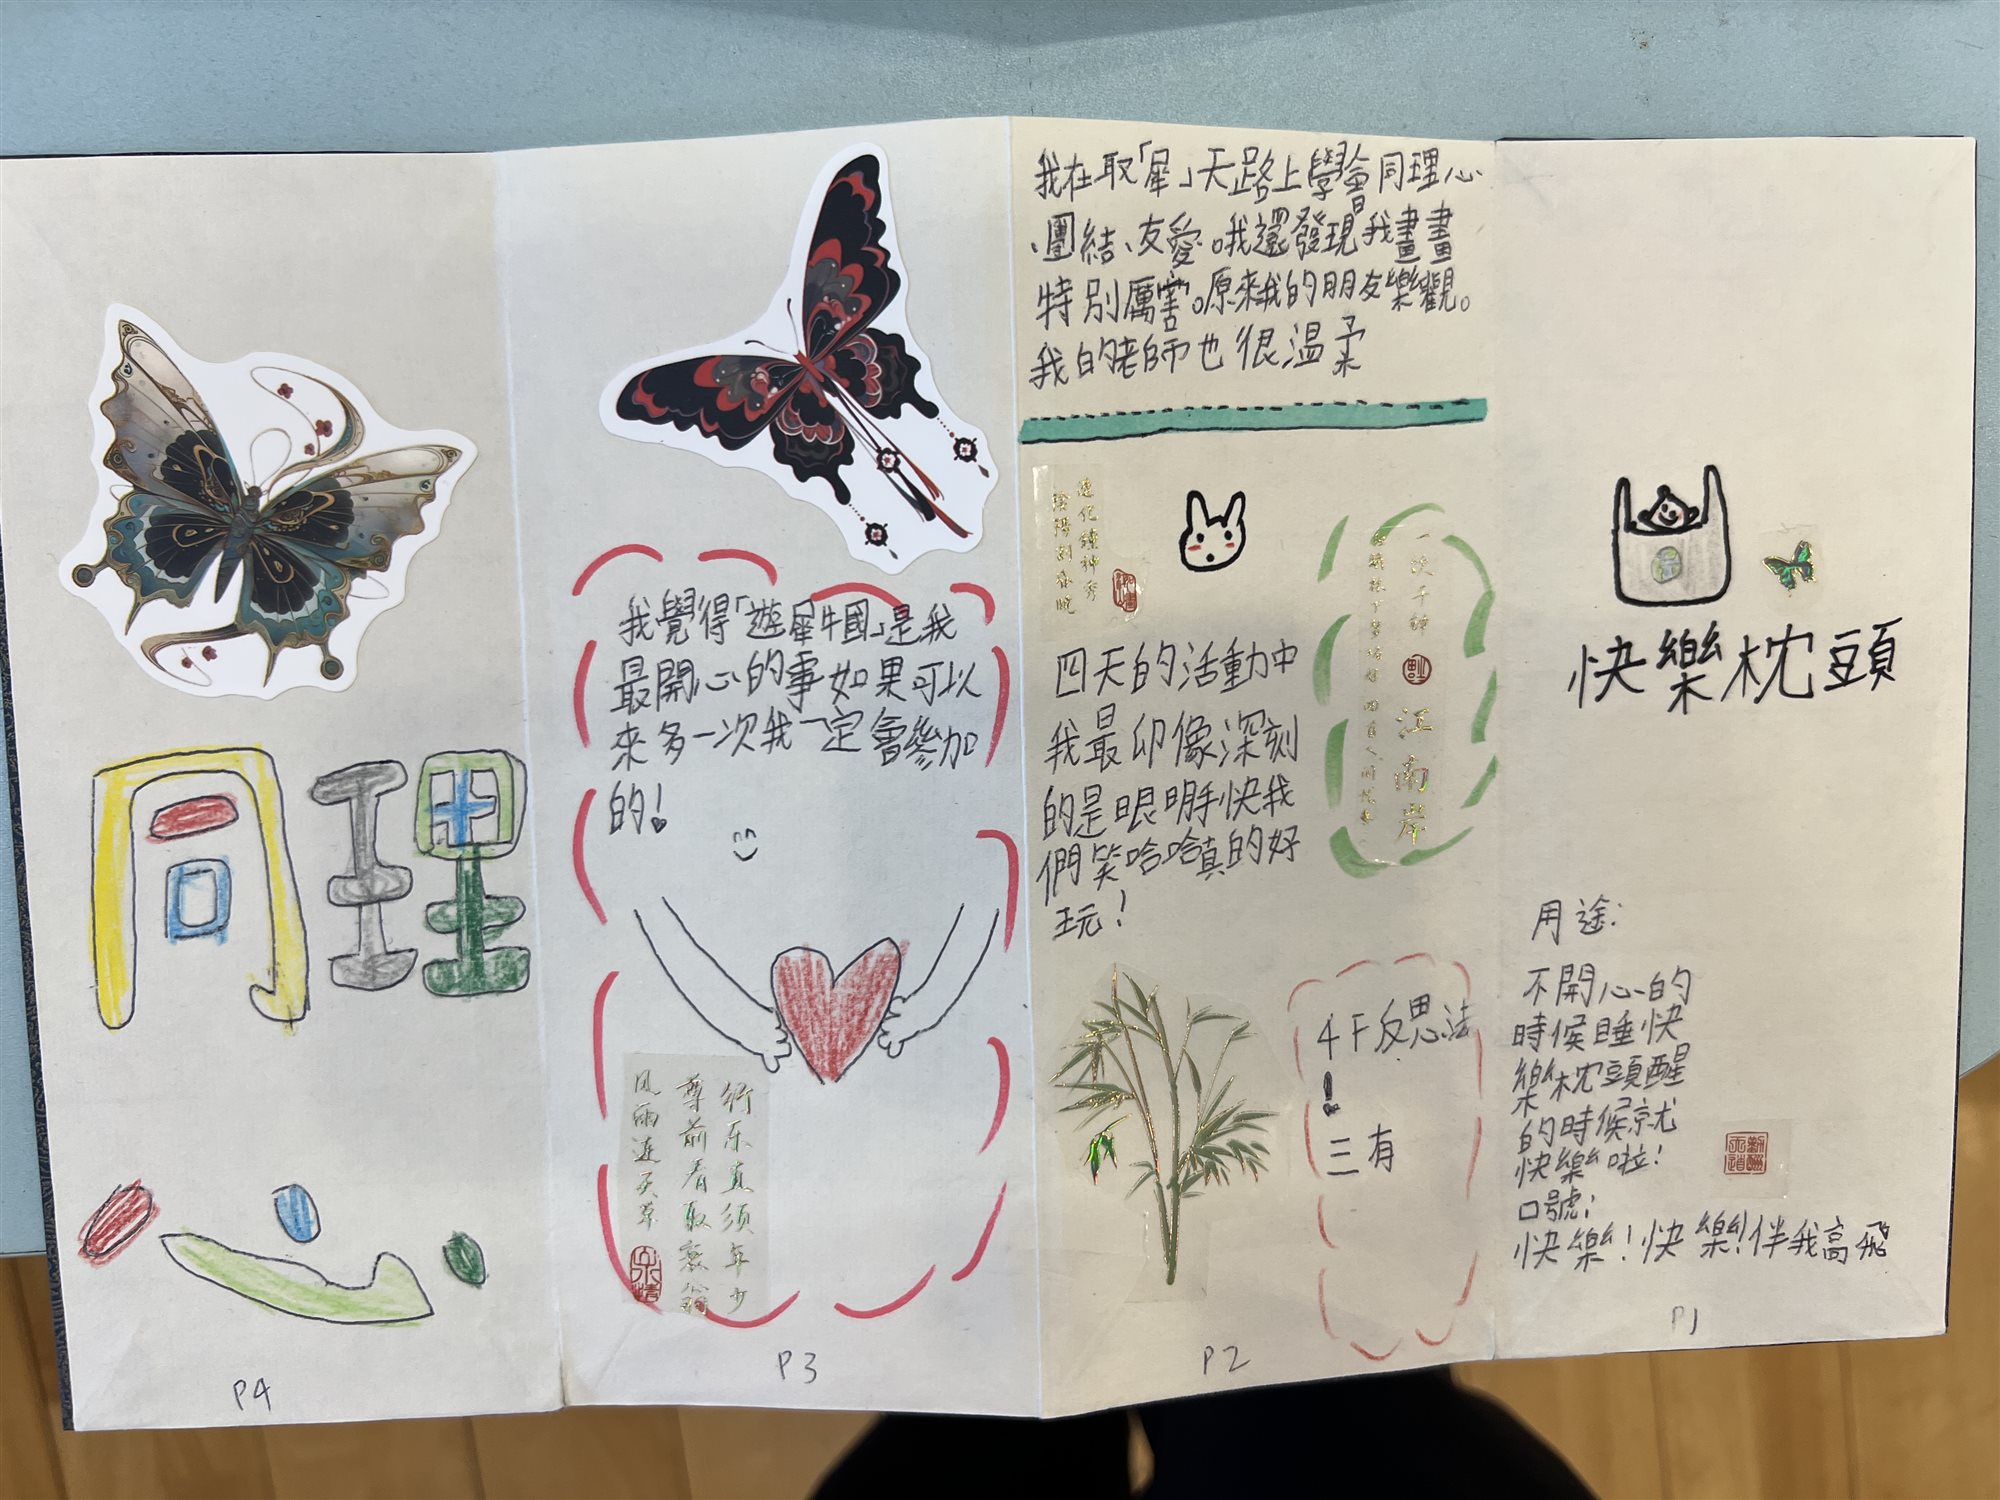 快樂枕頭
用途:
不開心的
時候睡快
樂枕頭醒
的時候就
快樂啦!
口號:
快樂!快樂!伴我高飛
P1
我在取「犀」天路上學會同理心
、團結、友愛。我還發現我畫畫
特別厲害。原來我的朋友樂觀。
我的老師也很温柔
造化鍾神秀
陰陽割昏曉
江南岸
四天的活動中
我最印像深刻
的是眼明手快我
們笑哈哈真的好
玩!
4F反思法
!
三有
P2
我覺得「遊犀牛國」是我
最開心的事如果可以
來多一次我一定會參加
的!
行乐直须年少
尊前看取衰翁
P3
同理
心
P4